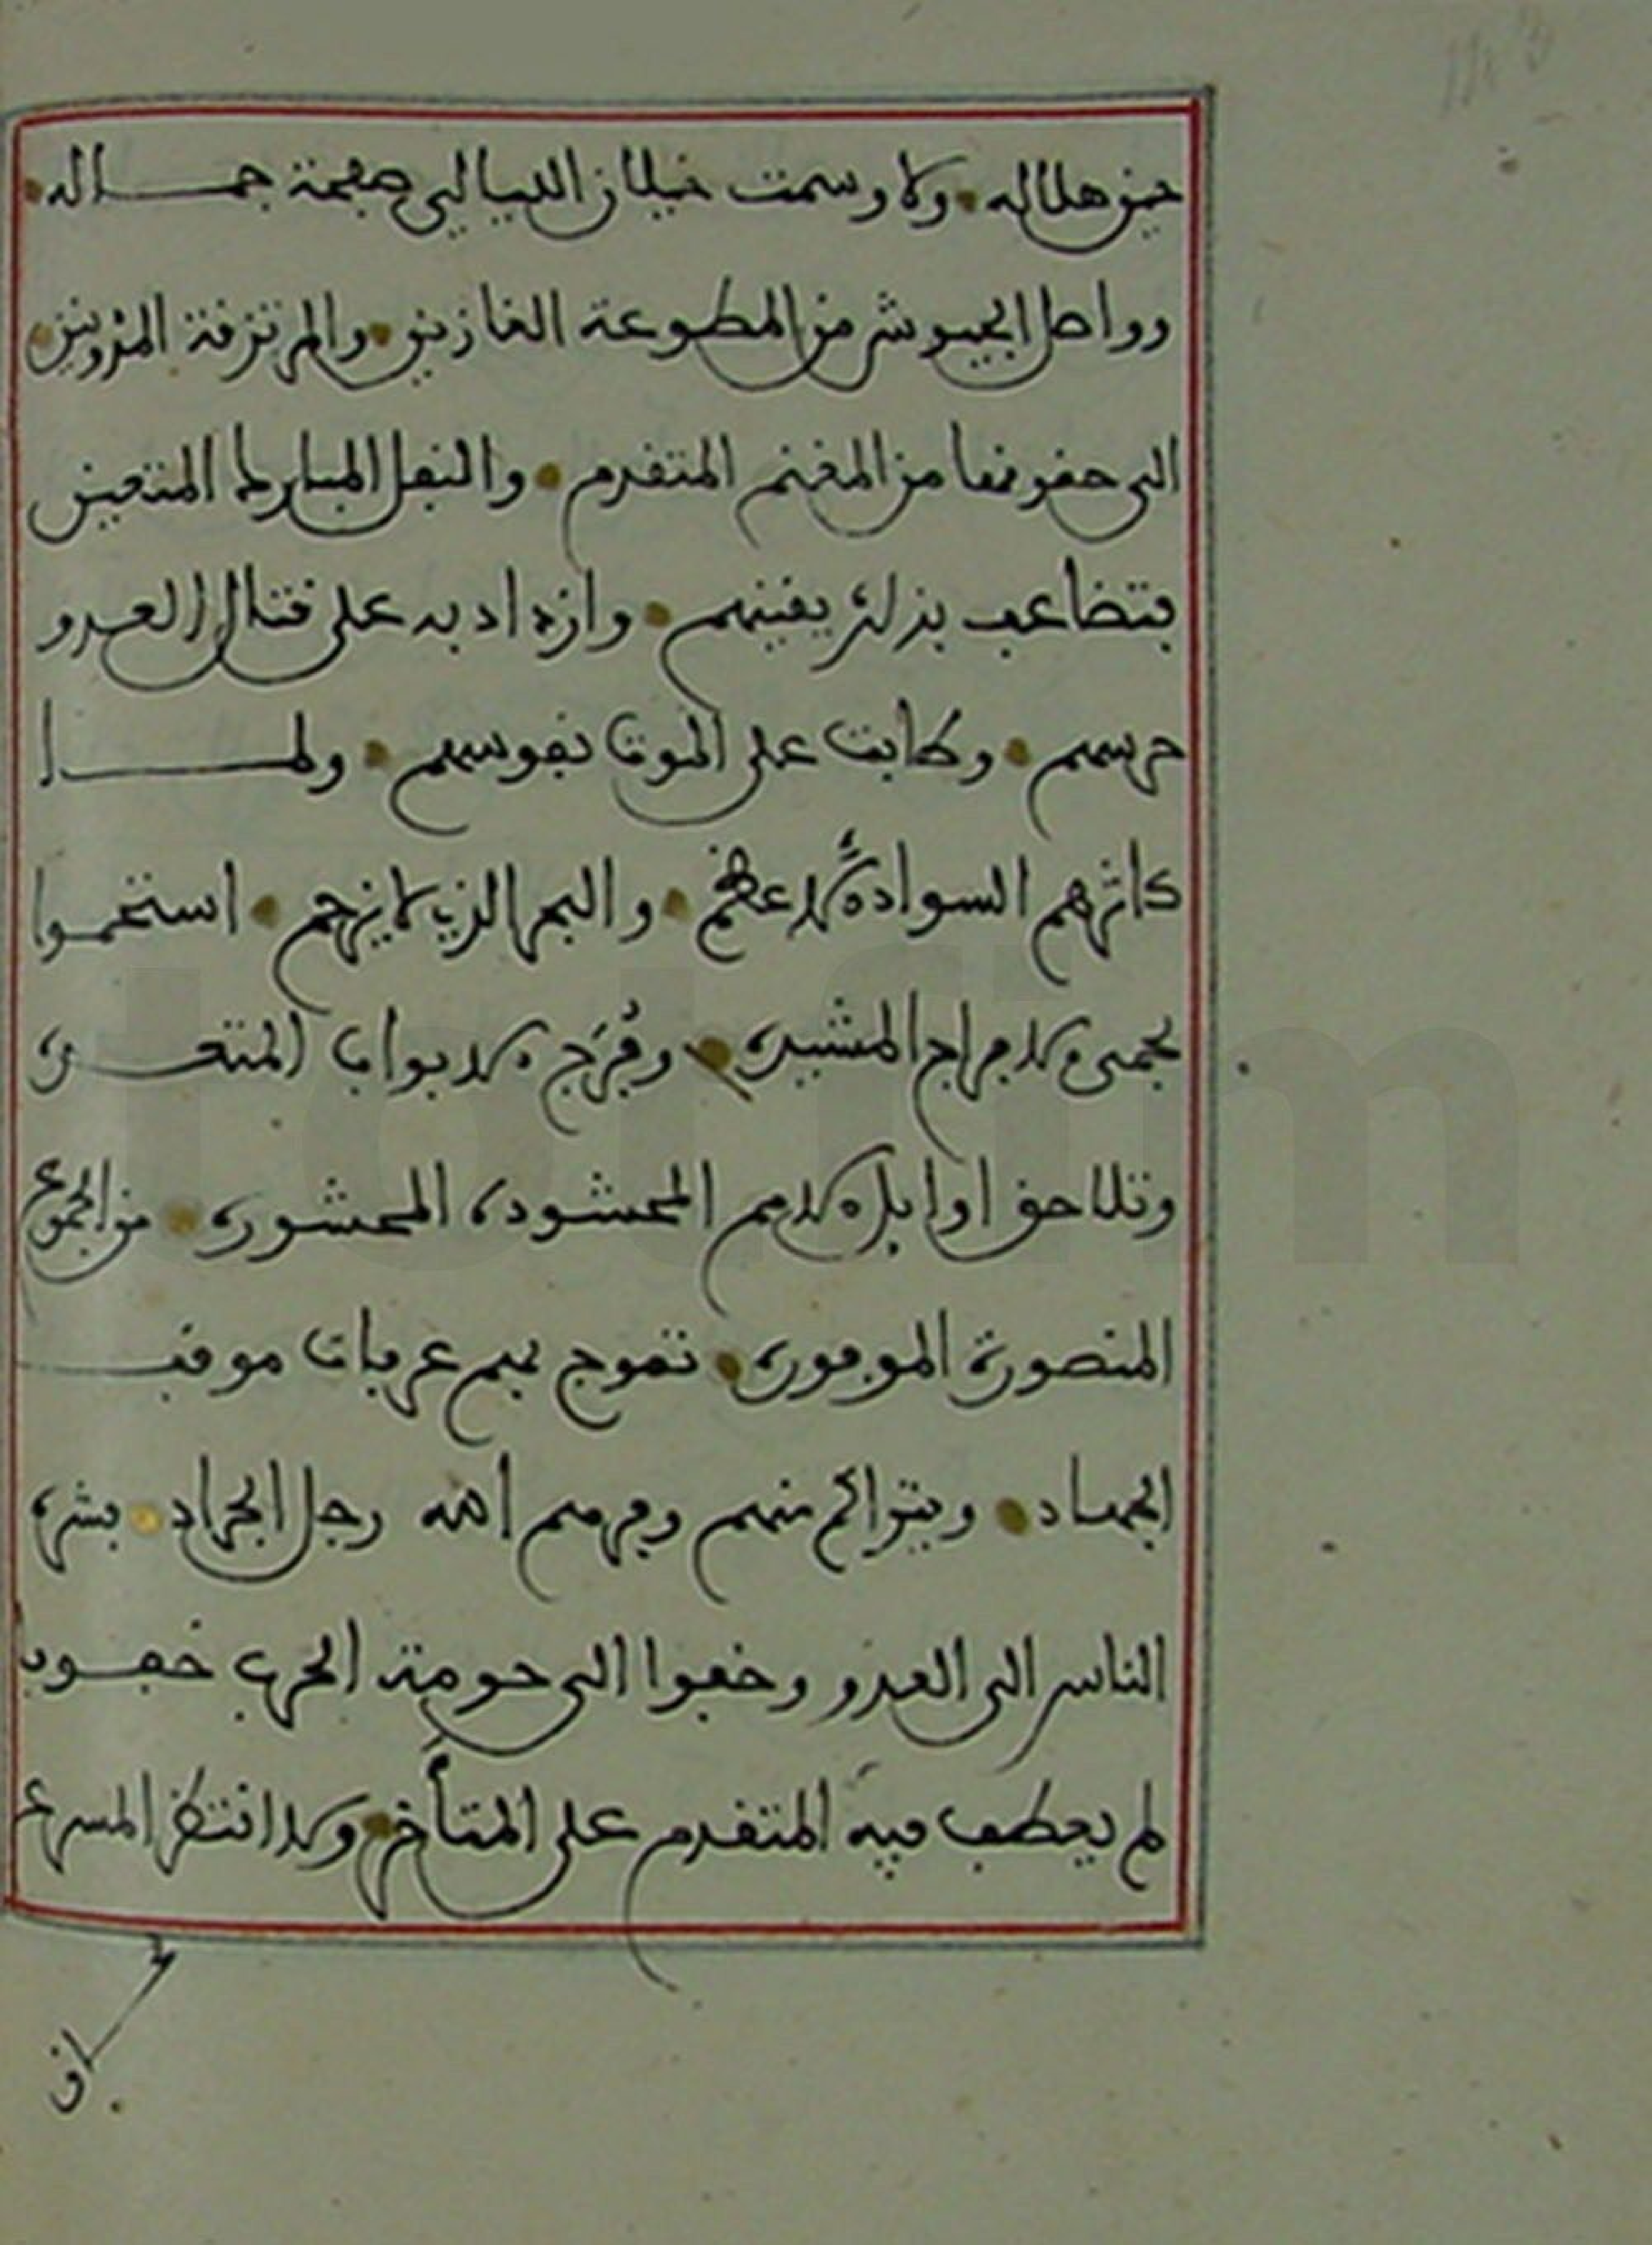 حين هلاله ولا وسمت خيلان الليالي صفحة جماله
وواصل الجيوش من المطوعة الغازين والمرتزقة المدونين
التي حفوفها من المغنم المتقدم والنفل المتعين
فتضاعف بذلك يقينهم وازداد به على قتال العدو
حرصهم وكابت على الموت نفوسهم ولما
كاثرهم السواد الأعظم واليم الذي لا يزحم استحموا
لحمى الأبراج المشيدة وفرج الأبواب المتعددة
وتلاحق اوايل الأمم المحشودة المحشورة من الجموع
المنصورة الموفورة تموج بهم عرفات موقف
الجهاد ويتراكم منهم وفرهم الله رجل الجراد بشره
الناس الى العدو وخفوا الى حومة الحرب خفوفا
لم يعطف فيه المتقدم على المتأخر ولا انتظر المسرع